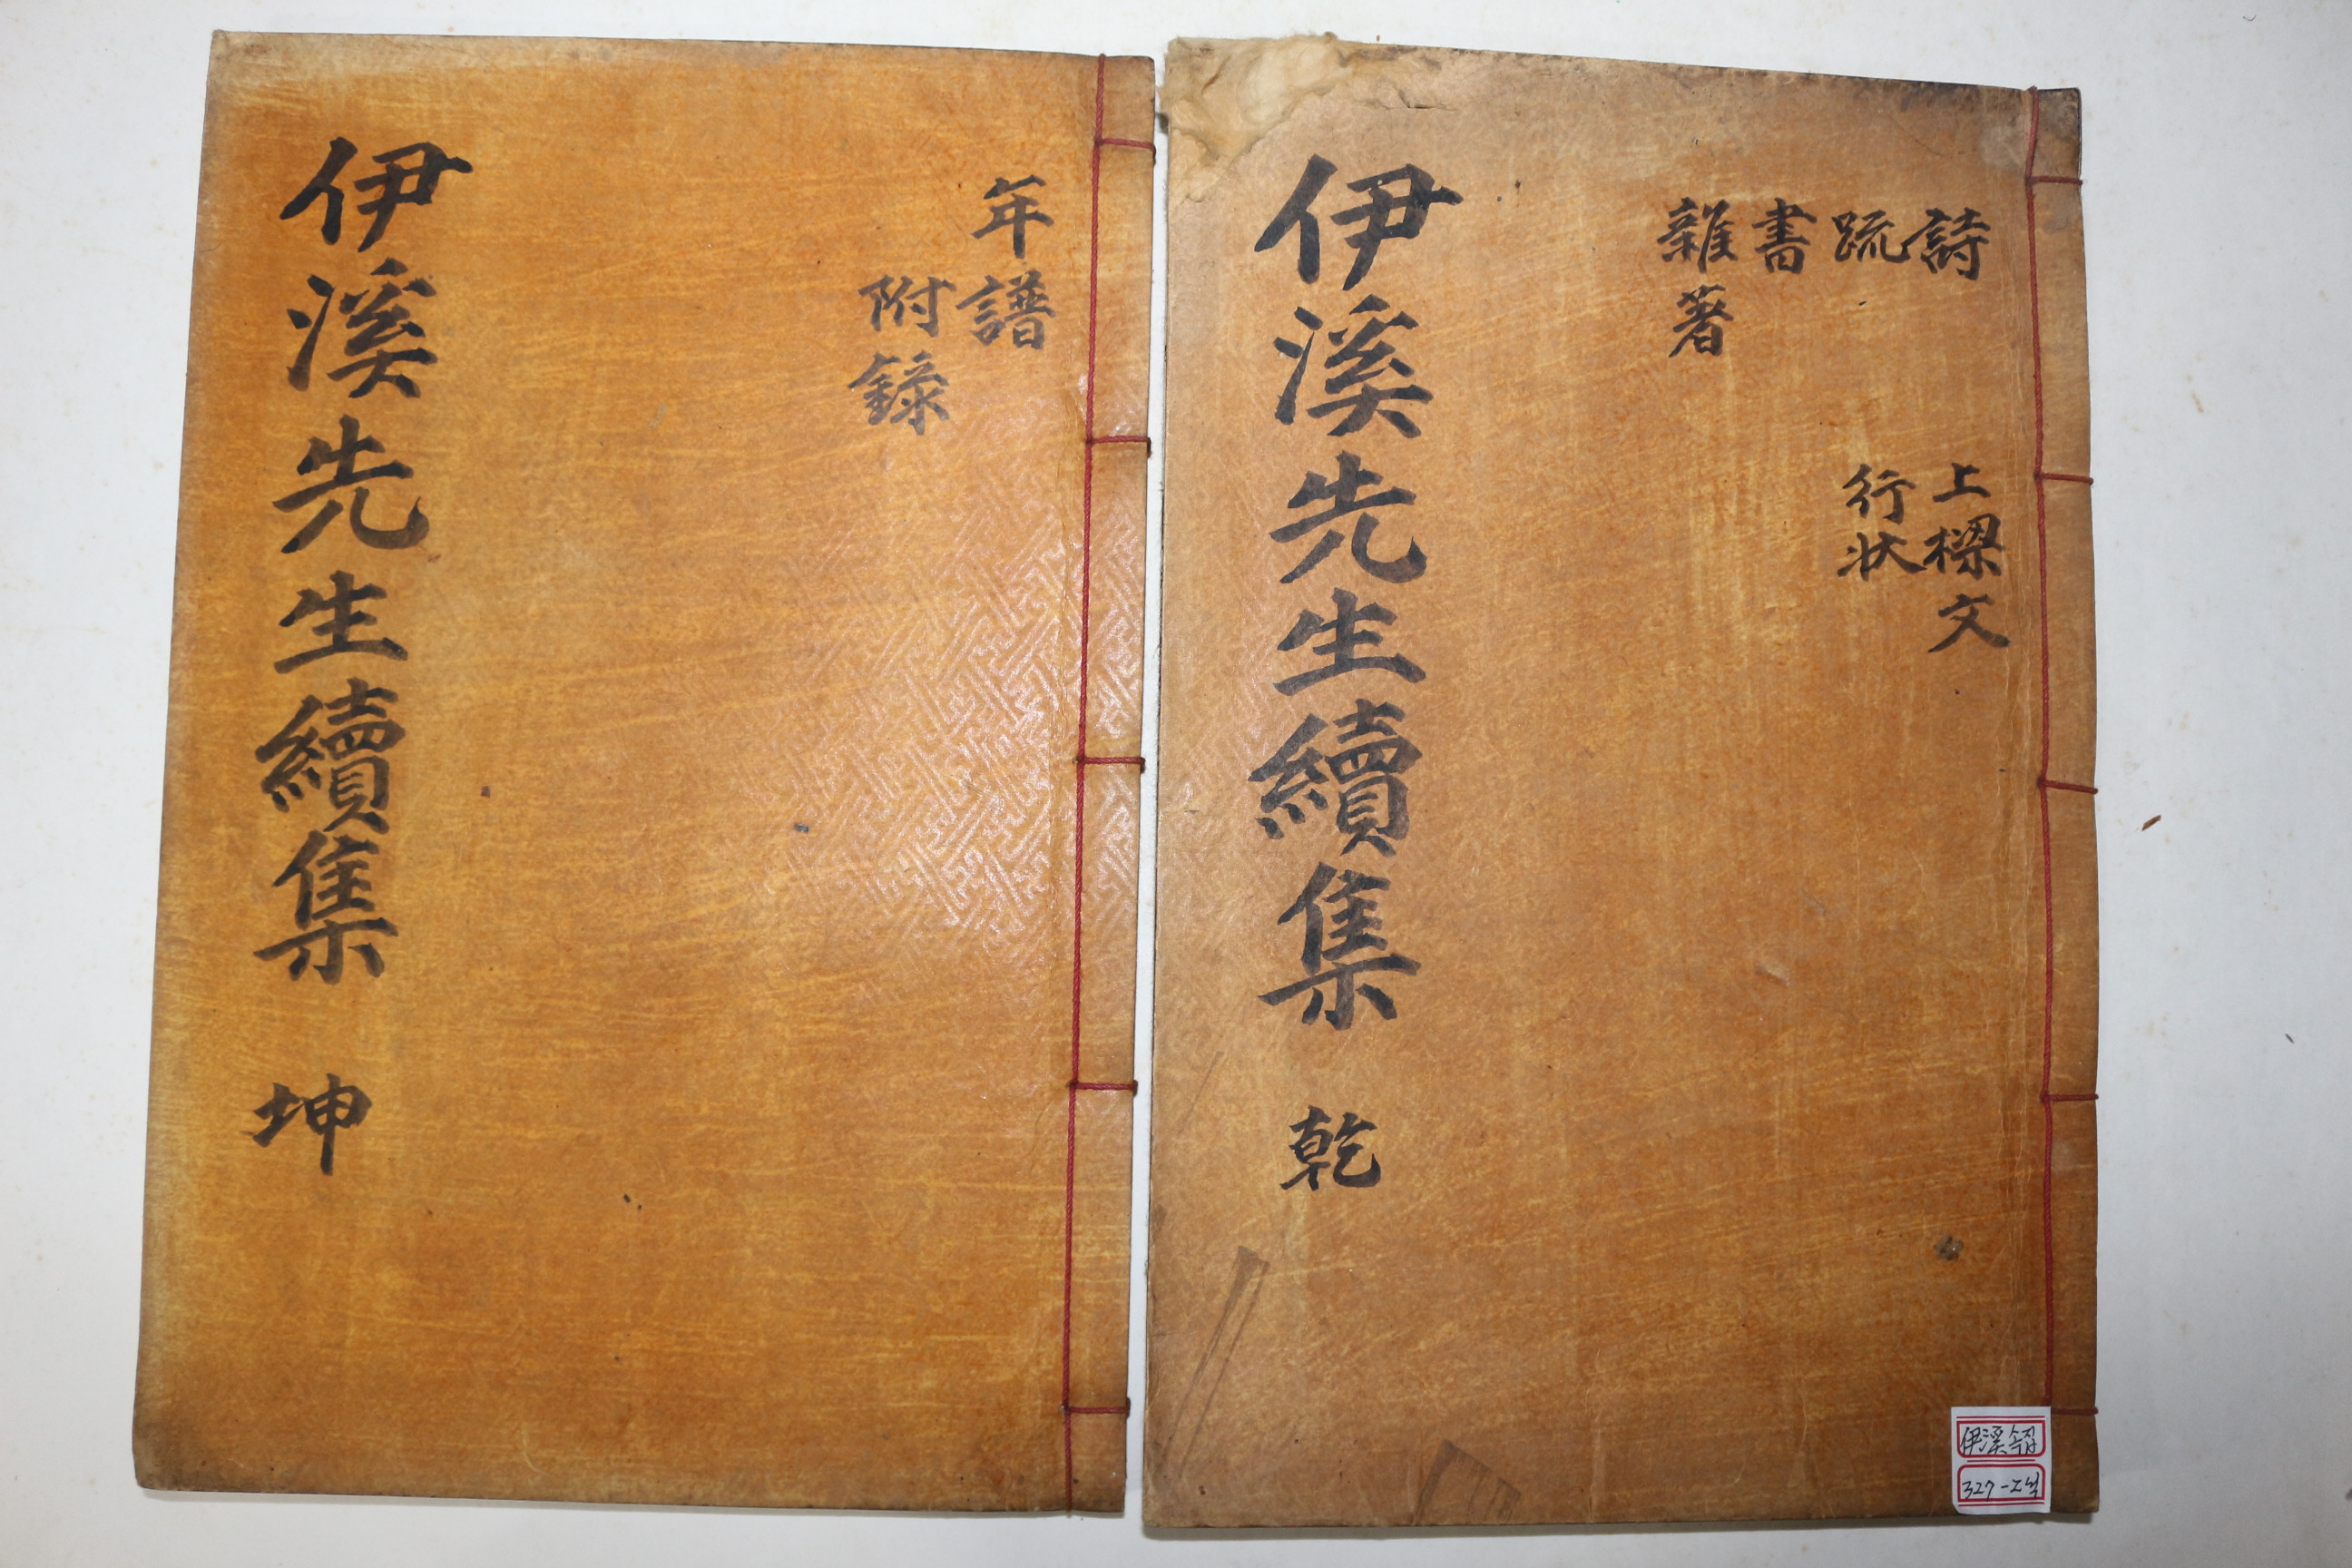 詩
疏
書
雜著
上樑文
行狀
伊溪先生續集 乾
伊溪속집
327-2book
年譜
附錄
伊溪先生續集 坤